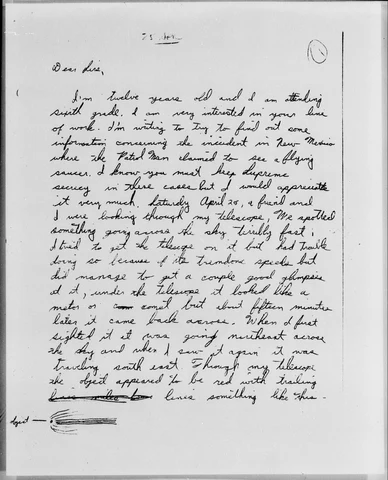 Dear Sirs,
I'm twelve years old and I am attending
sixth grade. I am very interested in your line
of work. I'm writing to try to find out some
information concerning the incident in New Mexico
where the Patrol Man claimed to see a flying
saucer. I know you must keep supreme
secrecy in these cases but I would appreciate
it very much. Saturday April 20, a friend and
I were looking through my telescope. We spotted
something going across the sky terribly fast;
I tried to get the telescope on it but had trouble
doing so because of its tremdone speeds but
did manage to get a couple good glimpses
at it, under the telescope it looked like a
meteor or comet but about fifteen minutes
later it came back across. When I first
sighted it it was going northeast across
the sky and when I saw it again it was
traveling south east. Through my telescope
the object appeared to be red with trailing
lines something like this-
object